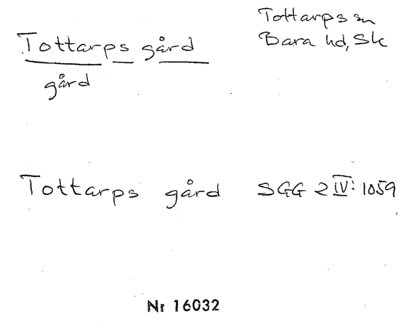 Tottarps gård
gård
Tottarps sn
Bara hd, Sk
Tottarps gård SGG 2 IV: 1059
Nr 16032